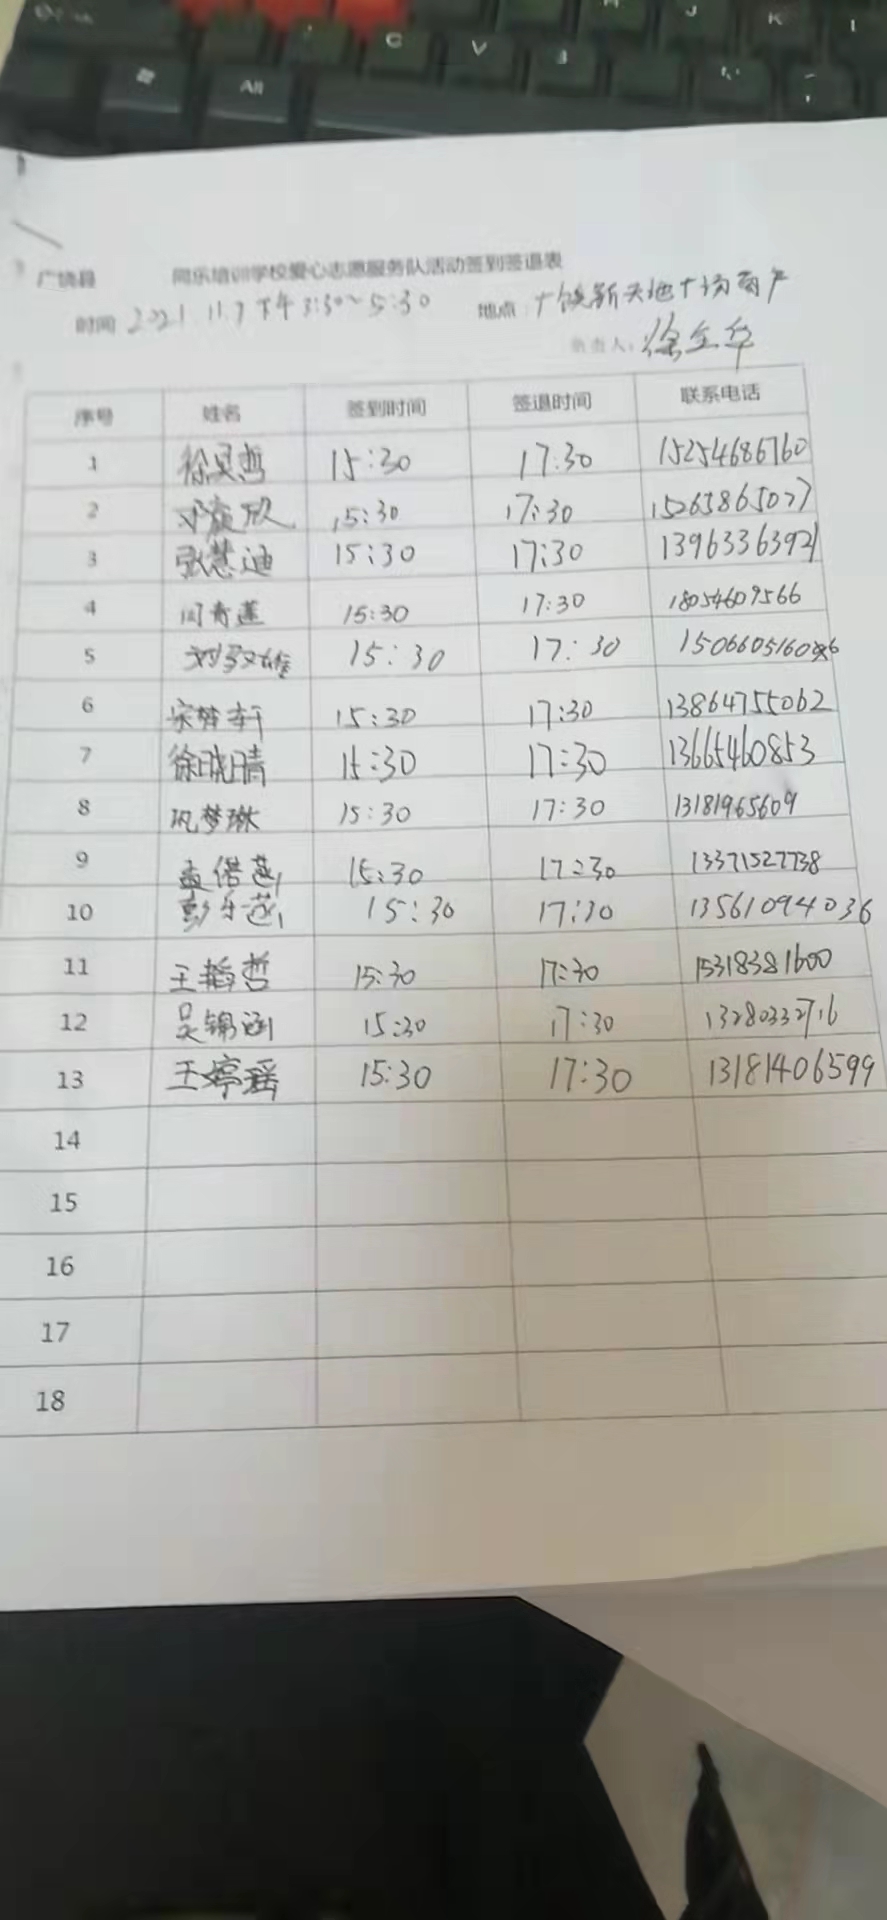 广饶县 同乐培训学校爱心志愿服务队活动签到签退表
时间 2021 11.7 下午 3:30～5:30 地点: 广饶新天地广场
负责人:
序号 姓名 签到时间 签退时间 联系电话
1 15:30 17:30 15254686760
2 15:30 17:30
3 张慧迪 15:30 17:30 13963363921
4 闫青莲 15:30 17:30 18054609566
5 15:30 17:30
6 15:30 17:30 13864755062
7 徐晓晴 15:30 17:30 13665460853
8 巩梦琳 15:30 17:30 13181965609
9 15:30 17:30 13371527738
10 15:30 17:30 13561094036
11 王韬哲 15:30 17:30 15318381600
12 吴锦涵 15:30 17:30 13280332716
13 王婷瑶 15:30 17:30 13181406599
14
15
16
17
18